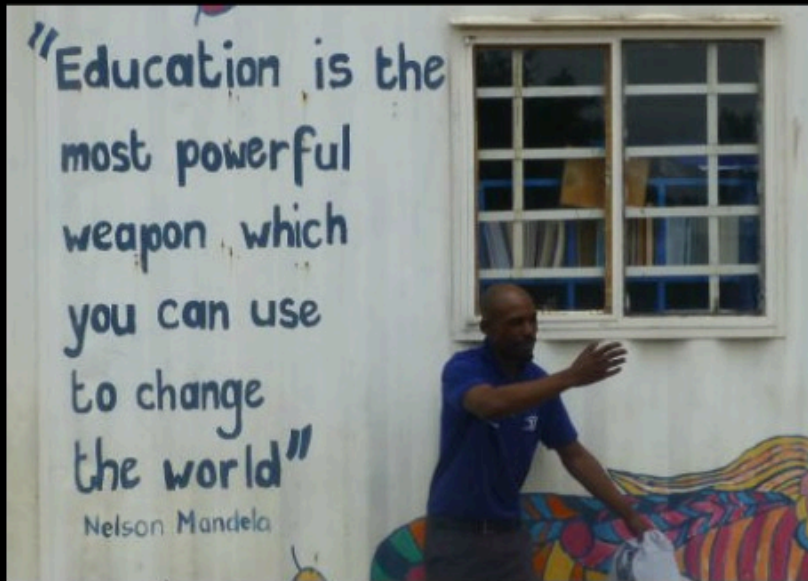 "Education is the
most powerful
weapon which
you can use
to change
the world"
Nelson Mandela